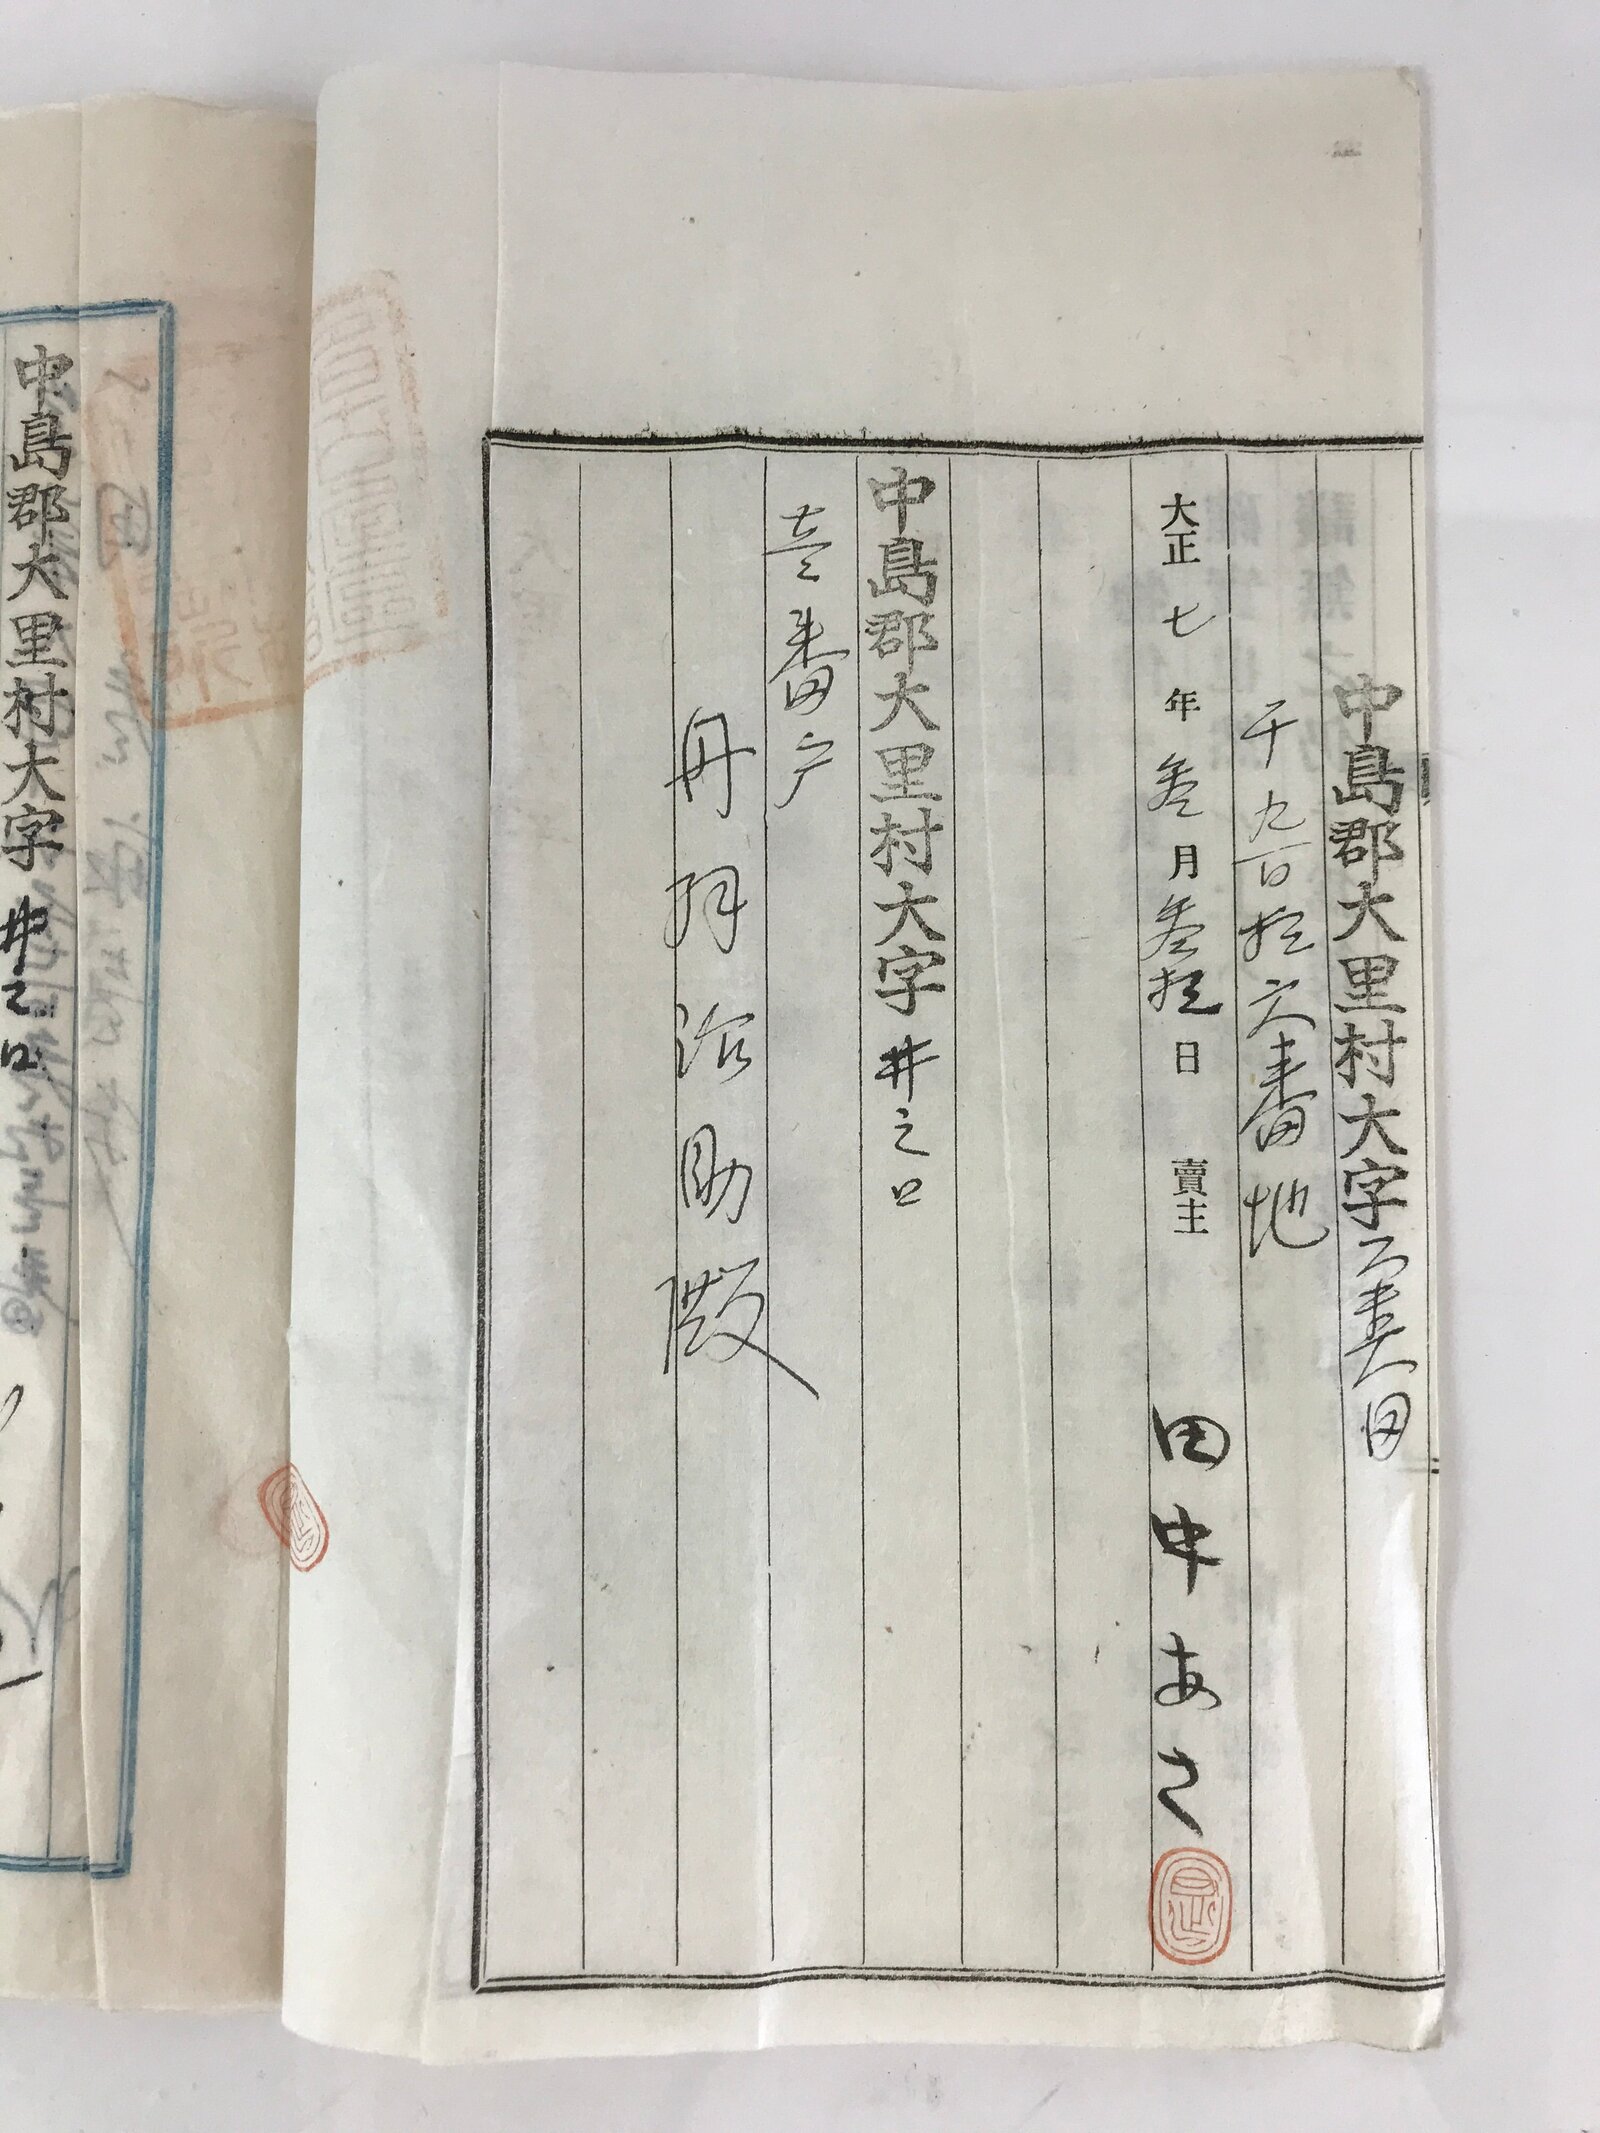 中島郡大里村大字
千九百拾六番地
大正七年叁月叁拾日 賣主 田中あさ
中島郡大里村大字井之口
壱番戸
丹羽治助殿
中島郡大里村大字井之口